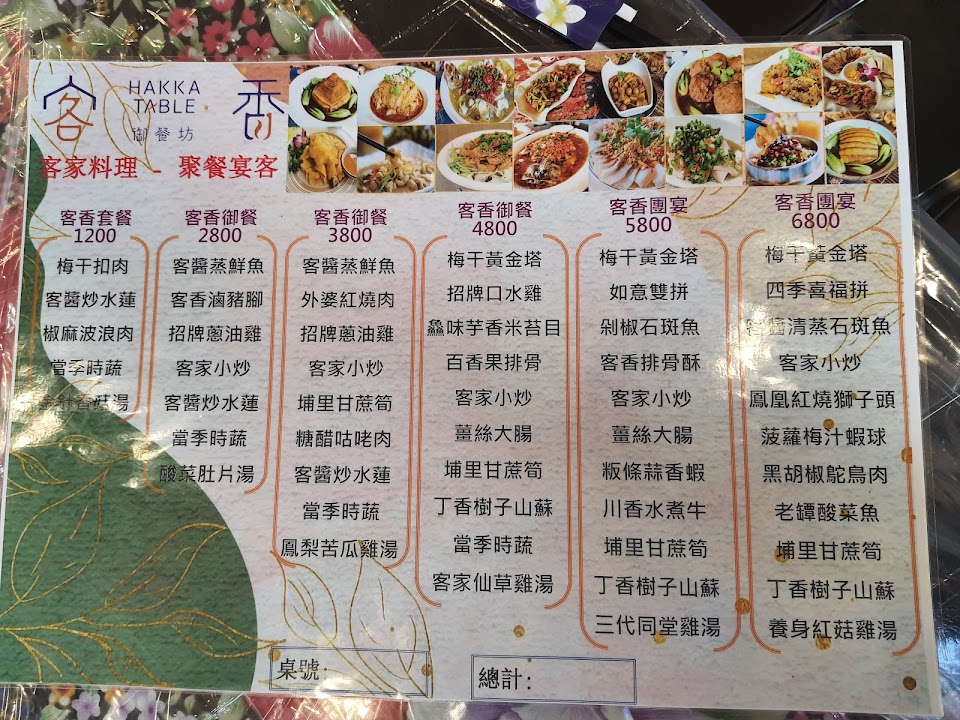 客香
HAKKA
TABLE
御餐坊
客家料理 - 聚餐宴客
客香套餐
1200
梅干扣肉
客醬炒水蓮
椒麻波浪肉
當季時蔬
香菇湯
客香御餐
2800
客醬蒸鮮魚
客香滷豬腳
招牌蔥油雞
客家小炒
客醬炒水蓮
當季時蔬
酸菜肚片湯
客香御餐
3800
客醬蒸鮮魚
外婆紅燒肉
招牌蔥油雞
客家小炒
埔里甘蔗筍
糖醋咕咾肉
客醬炒水蓮
當季時蔬
鳳梨苦瓜雞湯
客香御餐
4800
梅干黃金塔
招牌口水雞
鱻味芋香米苔目
百香果排骨
客家小炒
薑絲大腸
埔里甘蔗筍
丁香樹子山蘇
當季時蔬
客家仙草雞湯
客香團宴
5800
梅干黃金塔
如意雙拼
剁椒石斑魚
客香排骨酥
客家小炒
薑絲大腸
粄條蒜香蝦
川香水煮牛
埔里甘蔗筍
丁香樹子山蘇
三代同堂雞湯
客香團宴
6800
梅干黃金塔
四季喜福拼
客醬清蒸石斑魚
客家小炒
鳳凰紅燒獅子頭
菠蘿梅汁蝦球
黑胡椒鴕鳥肉
老罈酸菜魚
埔里甘蔗筍
丁香樹子山蘇
養身紅菇雞湯
桌號:
總計: